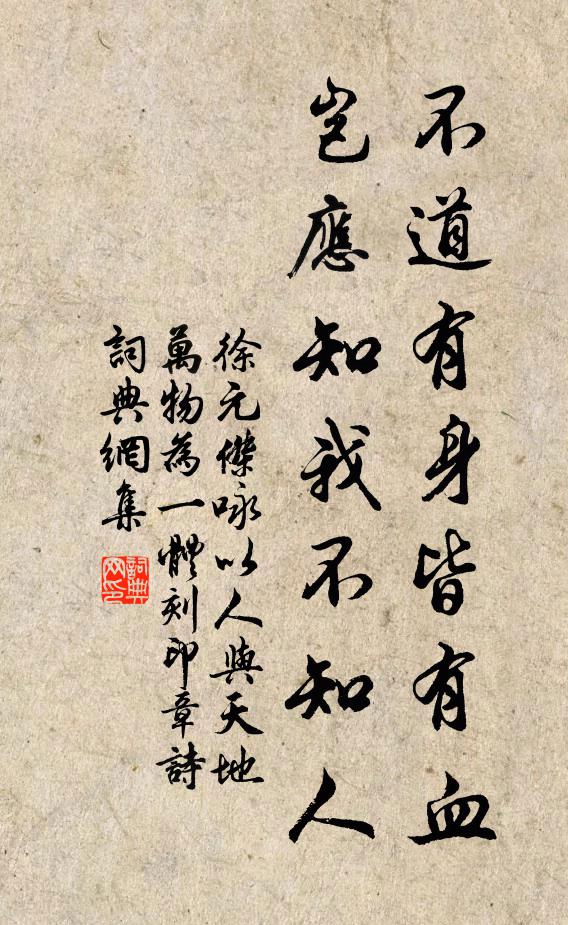 不道有身皆有血
豈應知我不知人
徐元傑咏以人與天地
萬物為一體刻印章詩
詞典網集
詞典网印